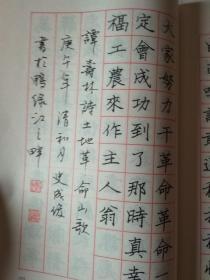 大家努力干革命革命一
定會成功到了那時真幸
福工農來作主人翁
譚壽林詩土地革命山歌
庚午年清和月史成俊
書於鴨綠江之畔